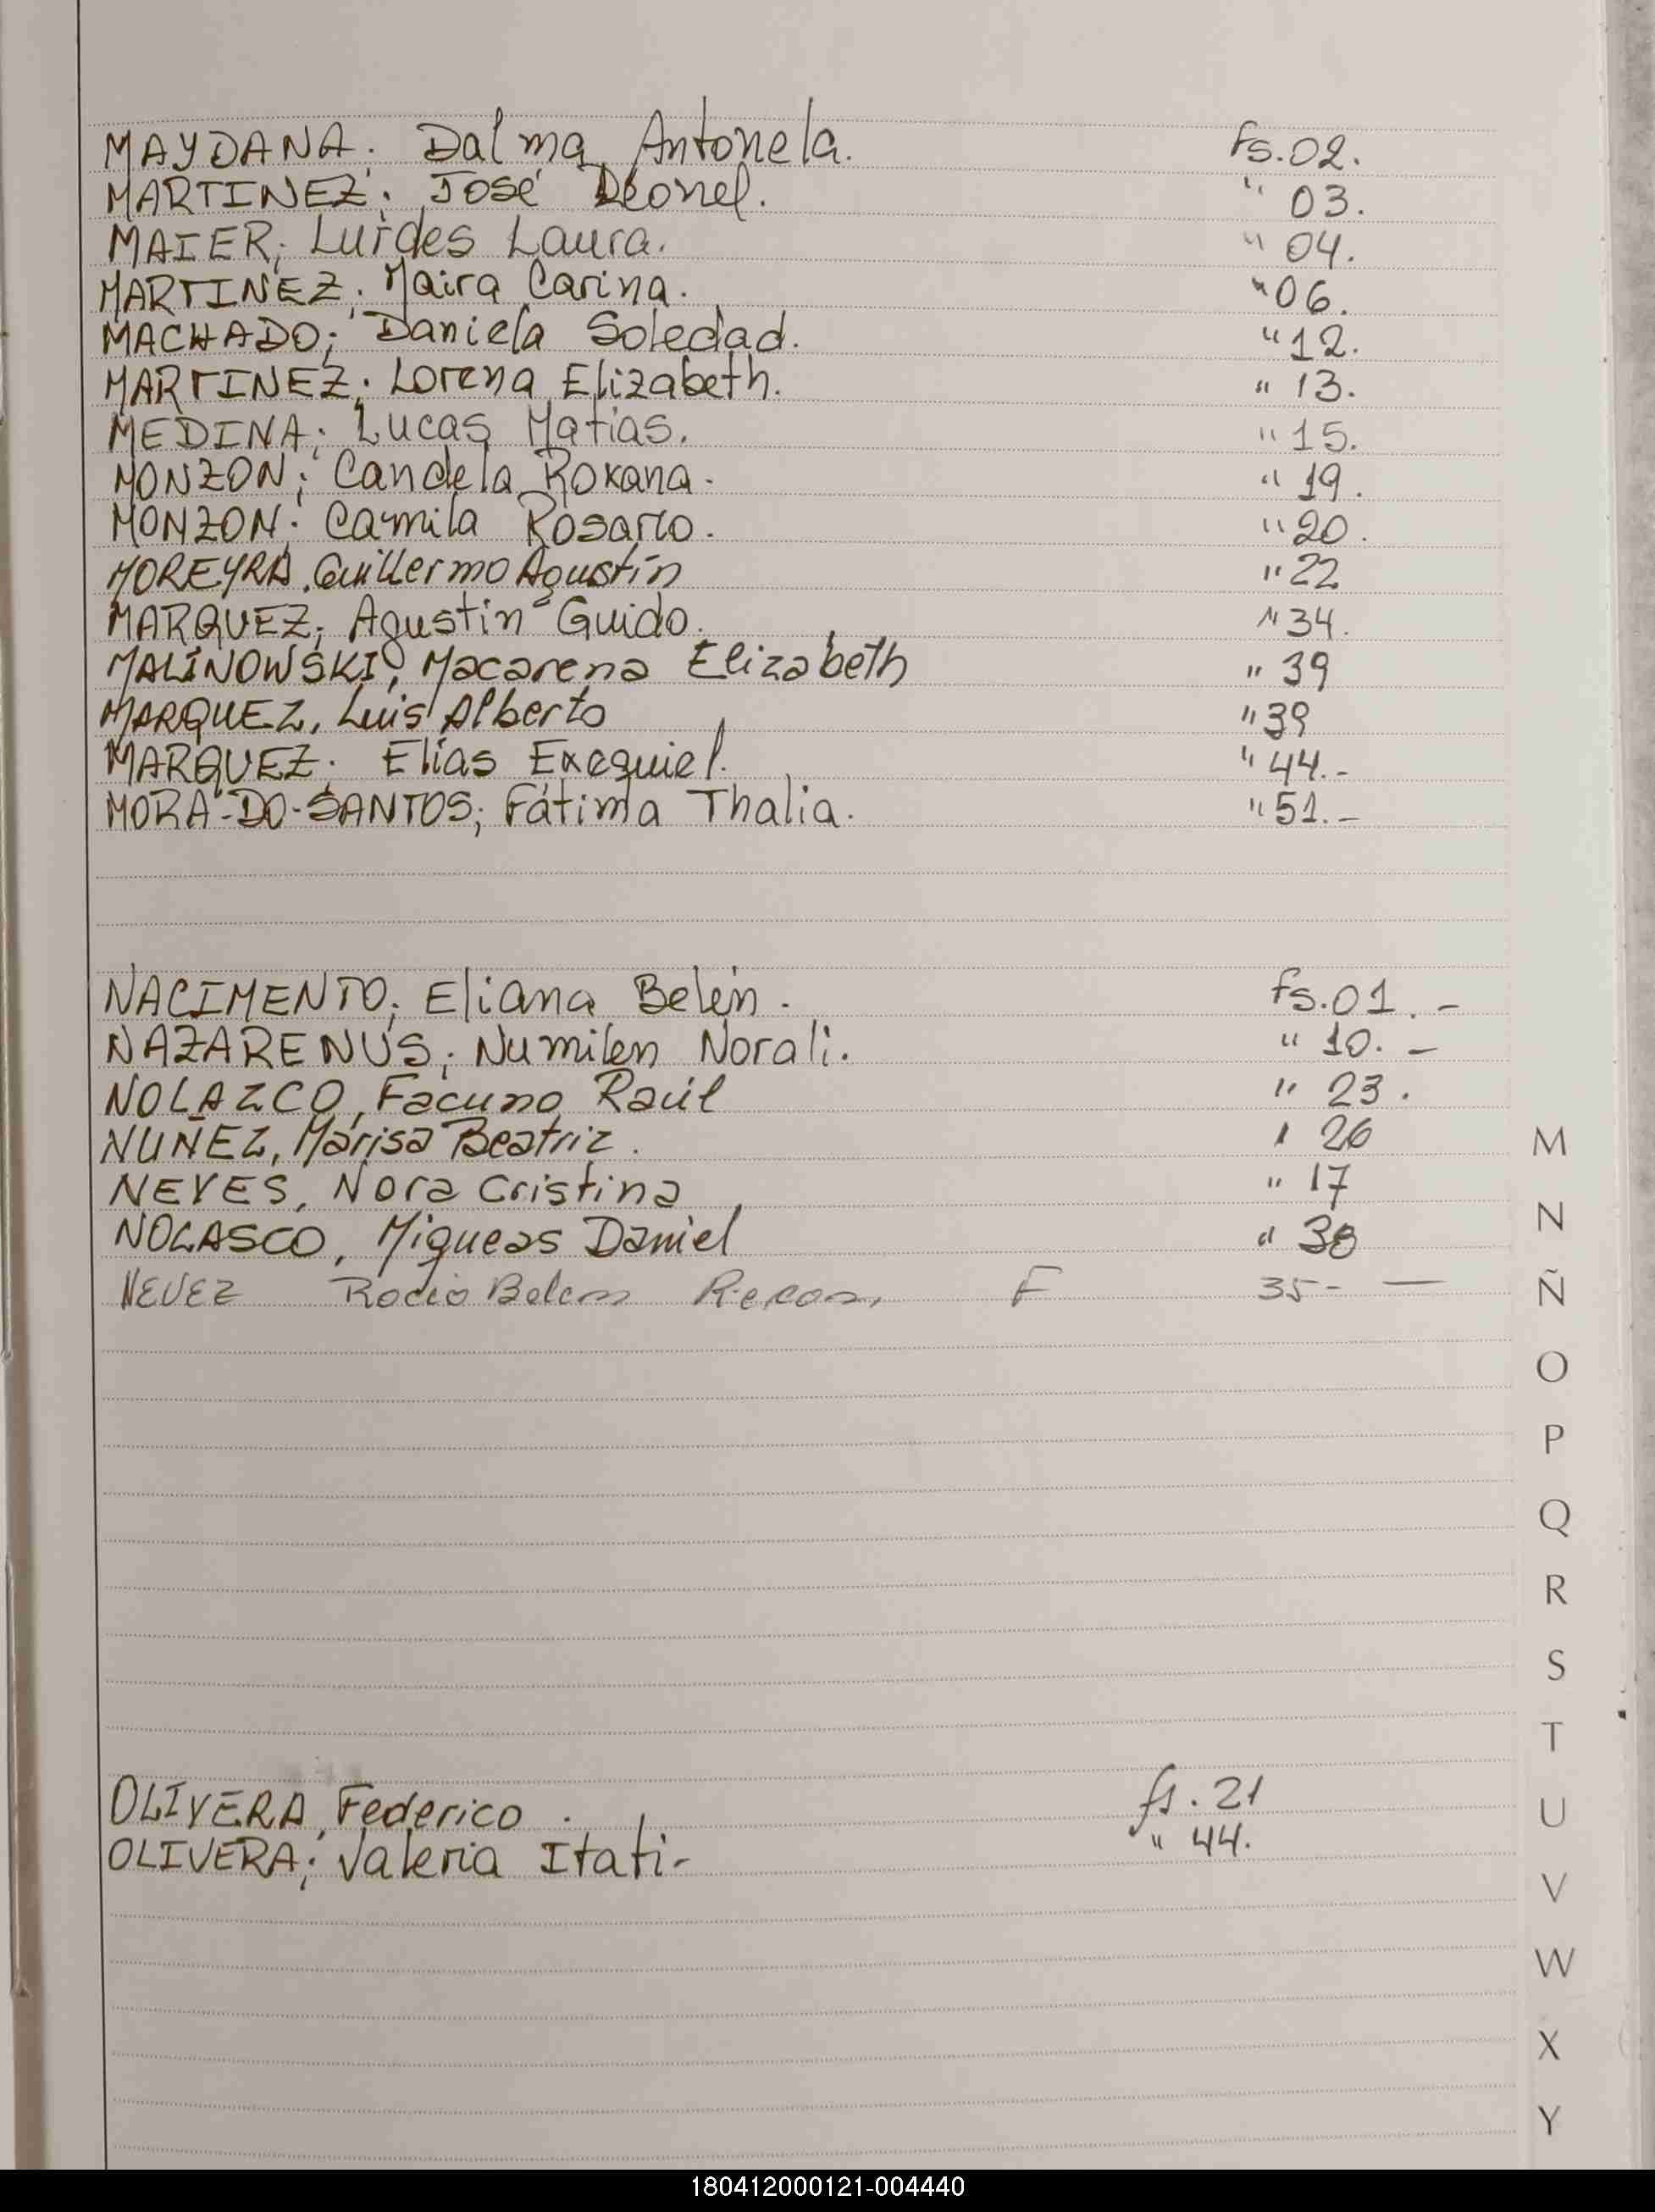 MAYDANA; Dalma Antonela. Fs. 02.
MARTINEZ; José Dionel. " 03.
MAIER; Lurdes Laura. " 04.
MARTINEZ; Maira Carina. " 06.
MACHADO; Daniela Soledad. " 12.
MARTINEZ; Lorena Elizabeth. " 13.
MEDINA; Lucas Matias. " 15.
MONZON; Candela Roxana. " 19.
MONZON; Camila Rosario. " 20.
MOREYRA, Guillermo Agustín " 22
MARQUEZ; Agustin Guido. " 34.
MALINOWSKI, Macarena Elizabeth " 39
MARQUEZ, Luis Alberto " 39
MARQUEZ; Elías Exequiel. " 44.-
MORA-DO-SANTOS; Fátima Thalia. " 51.-
NACIMENTO; Eliana Belén. Fs. 01.-
NAZARENUS; Numilen Norali. " 10.-
NOLAZCO, Facuno Raúl " 23.
NUÑEZ, Marisa Beatriz. " 26
NEVES, Nora Cristina " 17
NOLASCO, Miqueas Daniel " 38
NEVEZ Rocio Belen Recon, F 35- —
M
N
Ñ
O
P
Q
R
S
T
U
V
W
X
Y
OLIVERA, Federico. fs. 21
OLIVERA; Valeria Itati- " 44.
180412000121-004440